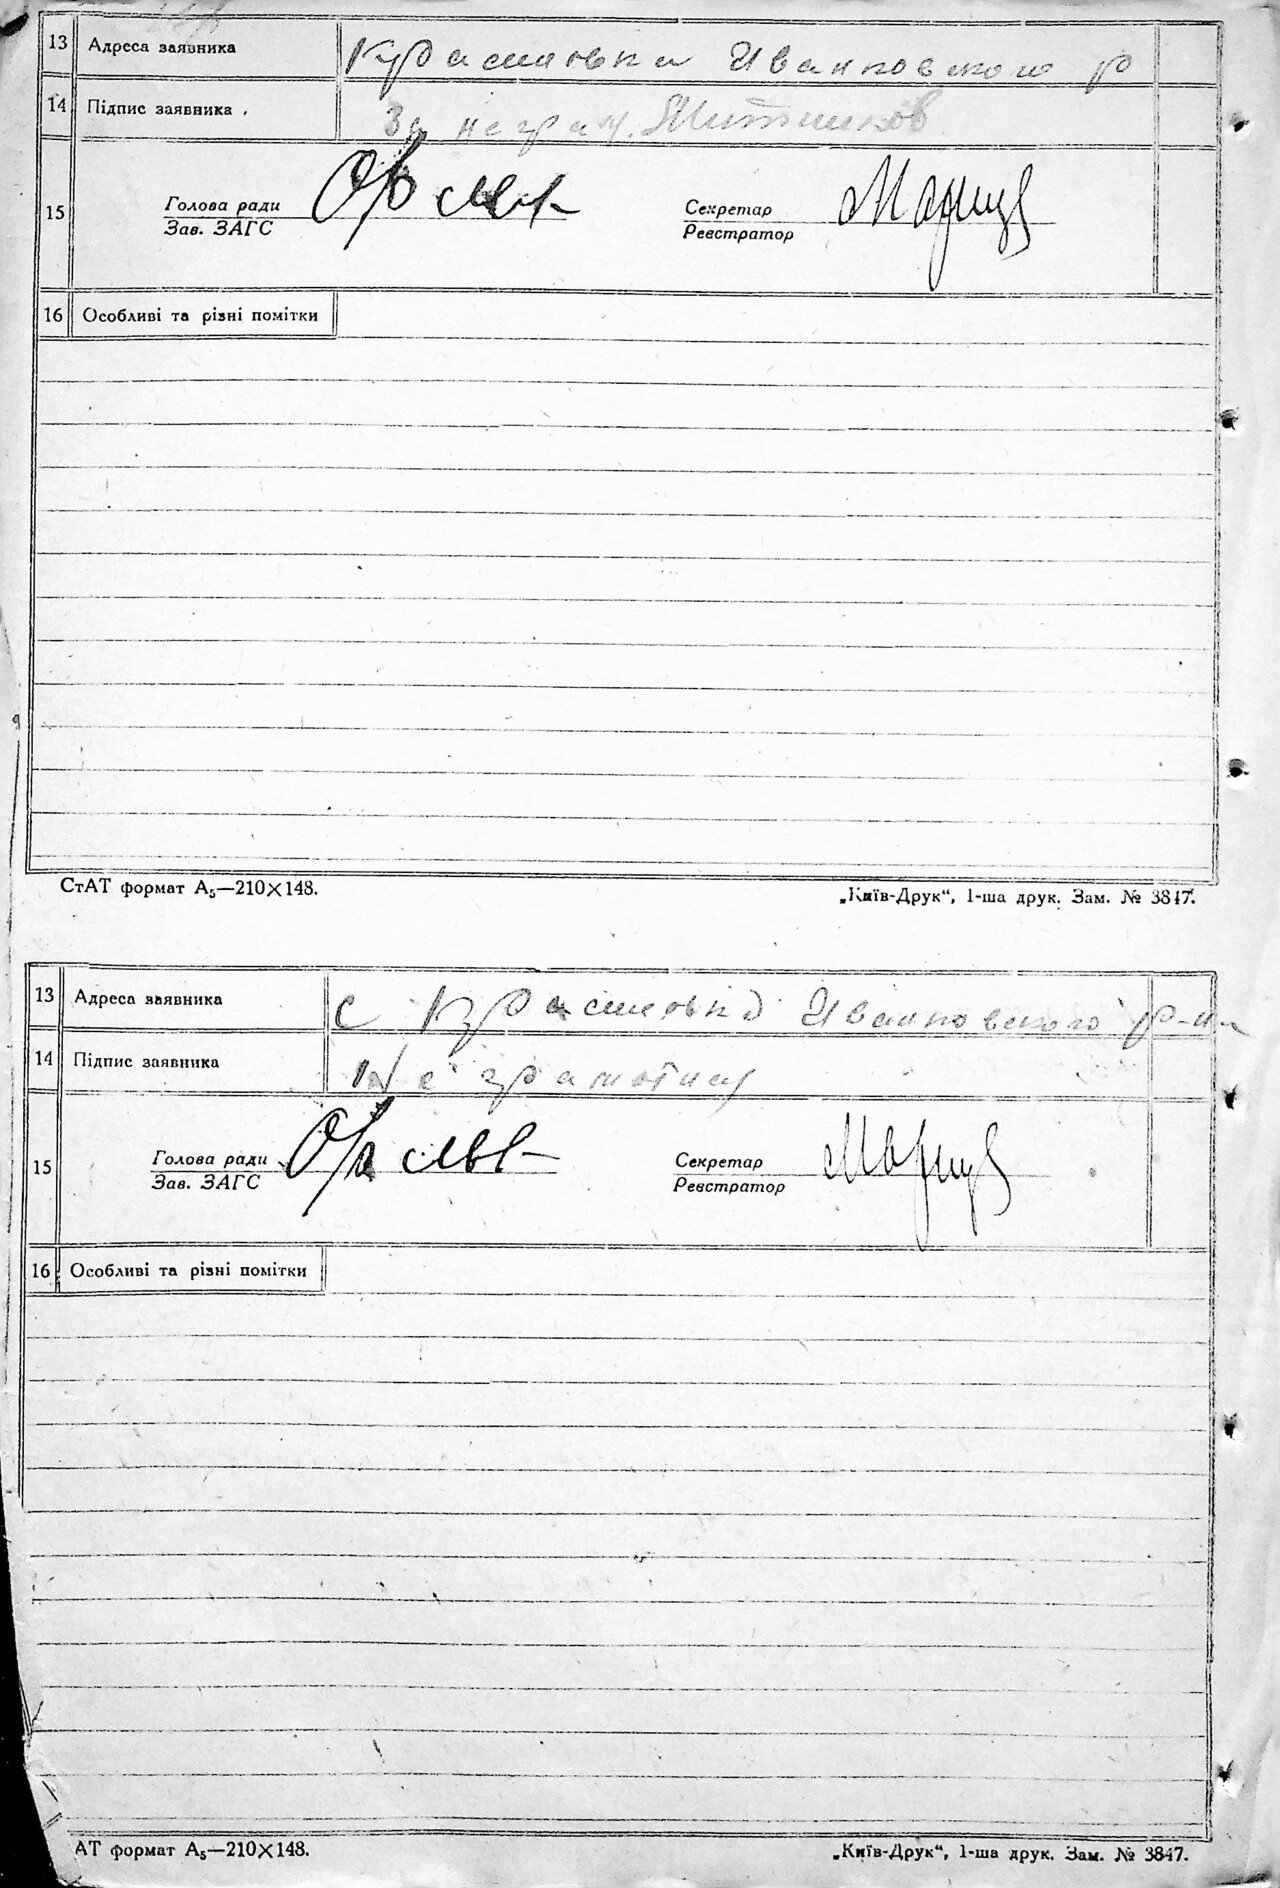 13 Адреса заявника Красиловка Иванковского р
14 Підпис заявника За неграм. Митников
15 Голова ради Секретар
Зав. ЗАГС Реєстратор
16 Особливі та різні помітки
СтАТ формат А₅—210×148. „Київ-Друк“, 1-ша друк. Зам. № 3847.
13 Адреса заявника с Красиловка Иванковского р-на
14 Підпис заявника Не грамотная
15 Голова ради Секретар
Зав. ЗАГС Реєстратор
16 Особливі та різні помітки
АТ формат А₅—210×148. „Київ-Друк“, 1-ша друк. Зам. № 3847.